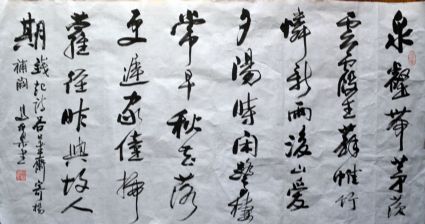 泉壑帶茅茨
雲霞生薜帷竹
憐新雨後山愛
夕陽時閑鷺棲
常早秋花落
更遲家僮掃
蘿徑昨與故人
期
錢起詩谷口書齋寄楊
補闕